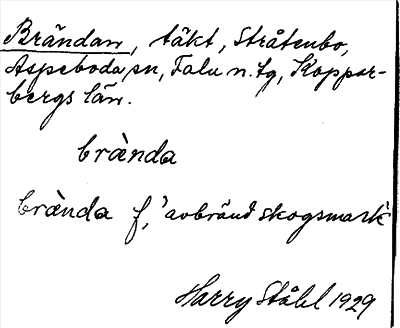 Brändan, täkt, Stråtenbo,
Aspeboda sn, Falu n. tg, Koppar-
bergs län.
brànda
brànda f, 'avbränd skogsmark'
Harry Ståhl 1929